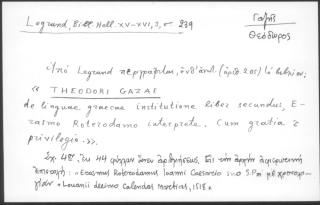 Legrand, Bibl. Hell. XV-XVI, 3, σ 239
Γαζῆς
Θεόδωρος
Ὑπὸ Legrand περιγράφεται, ἀριθ. 205) τὸ βιβλίον:
« THEODORI GAZAE
de linguae graecae institutione liber secundus, E-
rasmo Roterodamo interprete. Cum gratia et
privilegio.».
Σχ. 4ον, ἐκ 44 φύλλων ἄνευ ἀριθμήσεως. Εἰς τὴν ἀρχὴν ἀφιερωτικὴ
ἐπιστολή: «Erasmus Roterodamus Ioanni Caesario suo S.P.» μὲ χρονολο-
γίαν «Lovanii decimo Calendas Martias, 1518».